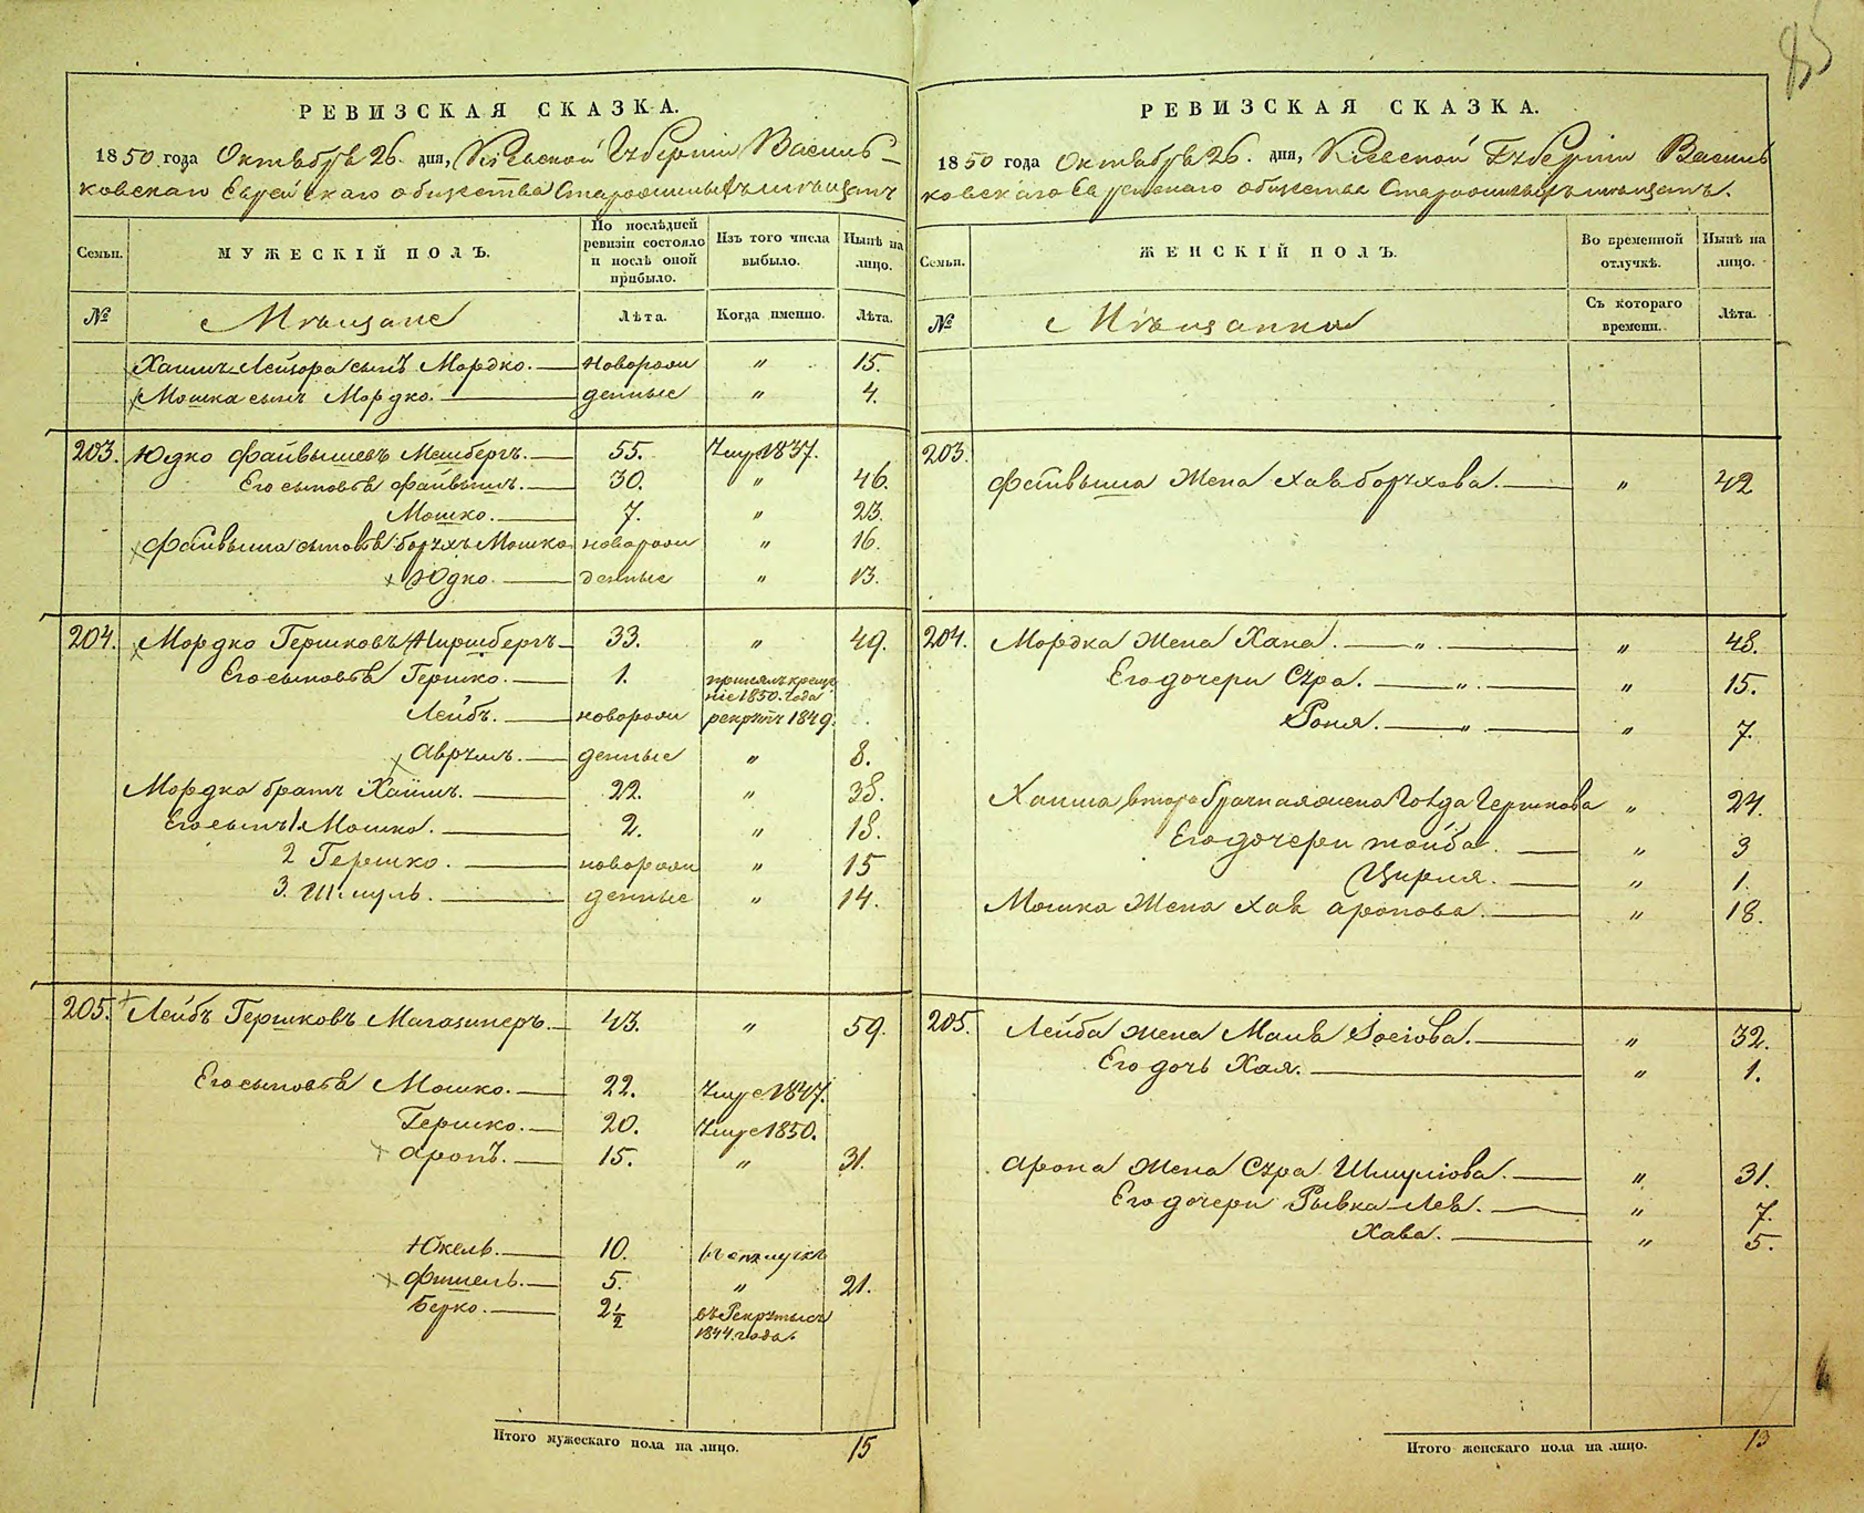 85
РЕВИЗСКАЯ СКАЗКА.
1850 года Октября 26. дня, Кіевской Губерніи Василь-
ковскаго Еврейскаго общества Старожилыхъ мѣщанъ
Семьи. МУЖЕСКІЙ ПОЛЪ. По послѣдней ревизіи состояло и послѣ оной прибыло. Изъ того числа выбыло. Нынѣ на лицо.
№ Мѣщане Лѣта. Когда именно. Лѣта.
Хаимъ Лейзора сынъ Мордко. новорож „ 15.
Мошка сынъ Мордко. денные „ 4.
203. Юдко Файвышевъ Мешбергъ. 55. Умре 1837.
Его сыновья Файвышъ. 30. „ 46.
Мошко. 7. „ 23.
Файвыша сыновья: Борухъ Мошко новорож „ 16.
Юдко. денные „ 13.
204. Мордко Гершковъ Ниршбергъ 33. „ 49.
Его сыновья Гершко. 1. принялъ креще
ніе 1850. года
Лейбъ. новорож рекрутъ 1849.
Аврумъ. денные „ 8.
Мордка братъ Хаимъ. 22. „ 38.
Его сынъ 1. Мошко. 2. „ 18.
2 Гершко. новорож „ 15
3. Шмуль. денные „ 14.
205. Лейбъ Гершковъ Магазинеръ. 43. „ 59.
Его сыновья Мошко. 22. Умре 1847.
Гершко. 20. Умре 1850.
Аронъ. 15. „ 31.
Юкель. 10. въ отлучкѣ
Фишель. 5. „ 21.
Берко. 2 1/2 въ Рекрутысъ
1844. года.
Итого мужескаго пола на лицо. 15
РЕВИЗСКАЯ СКАЗКА.
1850 года Октября 26. дня, Кіевской Губерніи Василь
ковскаго Еврейскаго общества Старожилыхъ мѣщанъ.
Семьи. ЖЕНСКІЙ ПОЛЪ. Во временной отлучкѣ. Нынѣ на лицо.
№ Мѣщанки Съ котораго времени. Лѣта.
203.
Файвыша Жена Хая Борухова. „ 42
204. Мордка Жена Хана. „ „ 48.
Его дочери Сура. „ „ 15.
Роня. „ „ 7.
Хаима второбрачная жена Голда Гершкова „ 24.
Его дочери Тойба. „ 3
Цирля. „ 1.
Мошка Жена Хая Аронова. „ 18.
205. Лейба жена Маня Іосіова. „ 32.
Его дочь Хая. „ 1.
Арона Жена Сура Шмуліова. „ 31.
Его дочери Рывка-Лея. „ 7.
Хава. „ 5.
Итого женскаго пола на лицо. 13